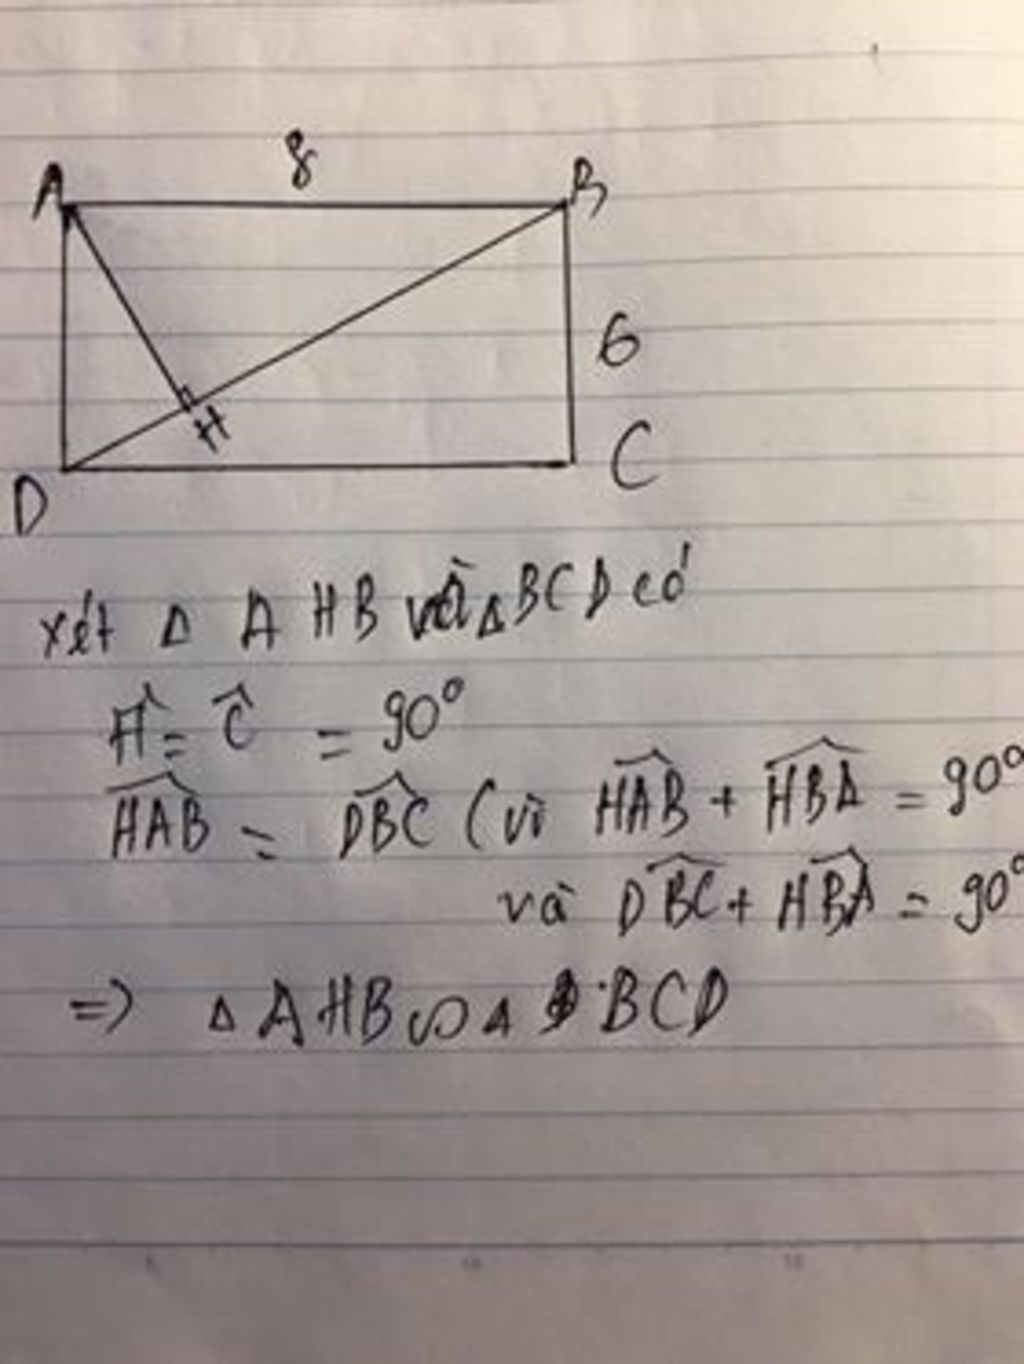 8
A
B
6
H
C
D
xét Δ AHB và Δ BCD có
Ĥ = Ĉ = 90°
HAB̂ = DBĈ (vì HAB̂ + HBÂ = 90°
và DBĈ + HBÂ = 90°
=> Δ AHB ∽ Δ BCD